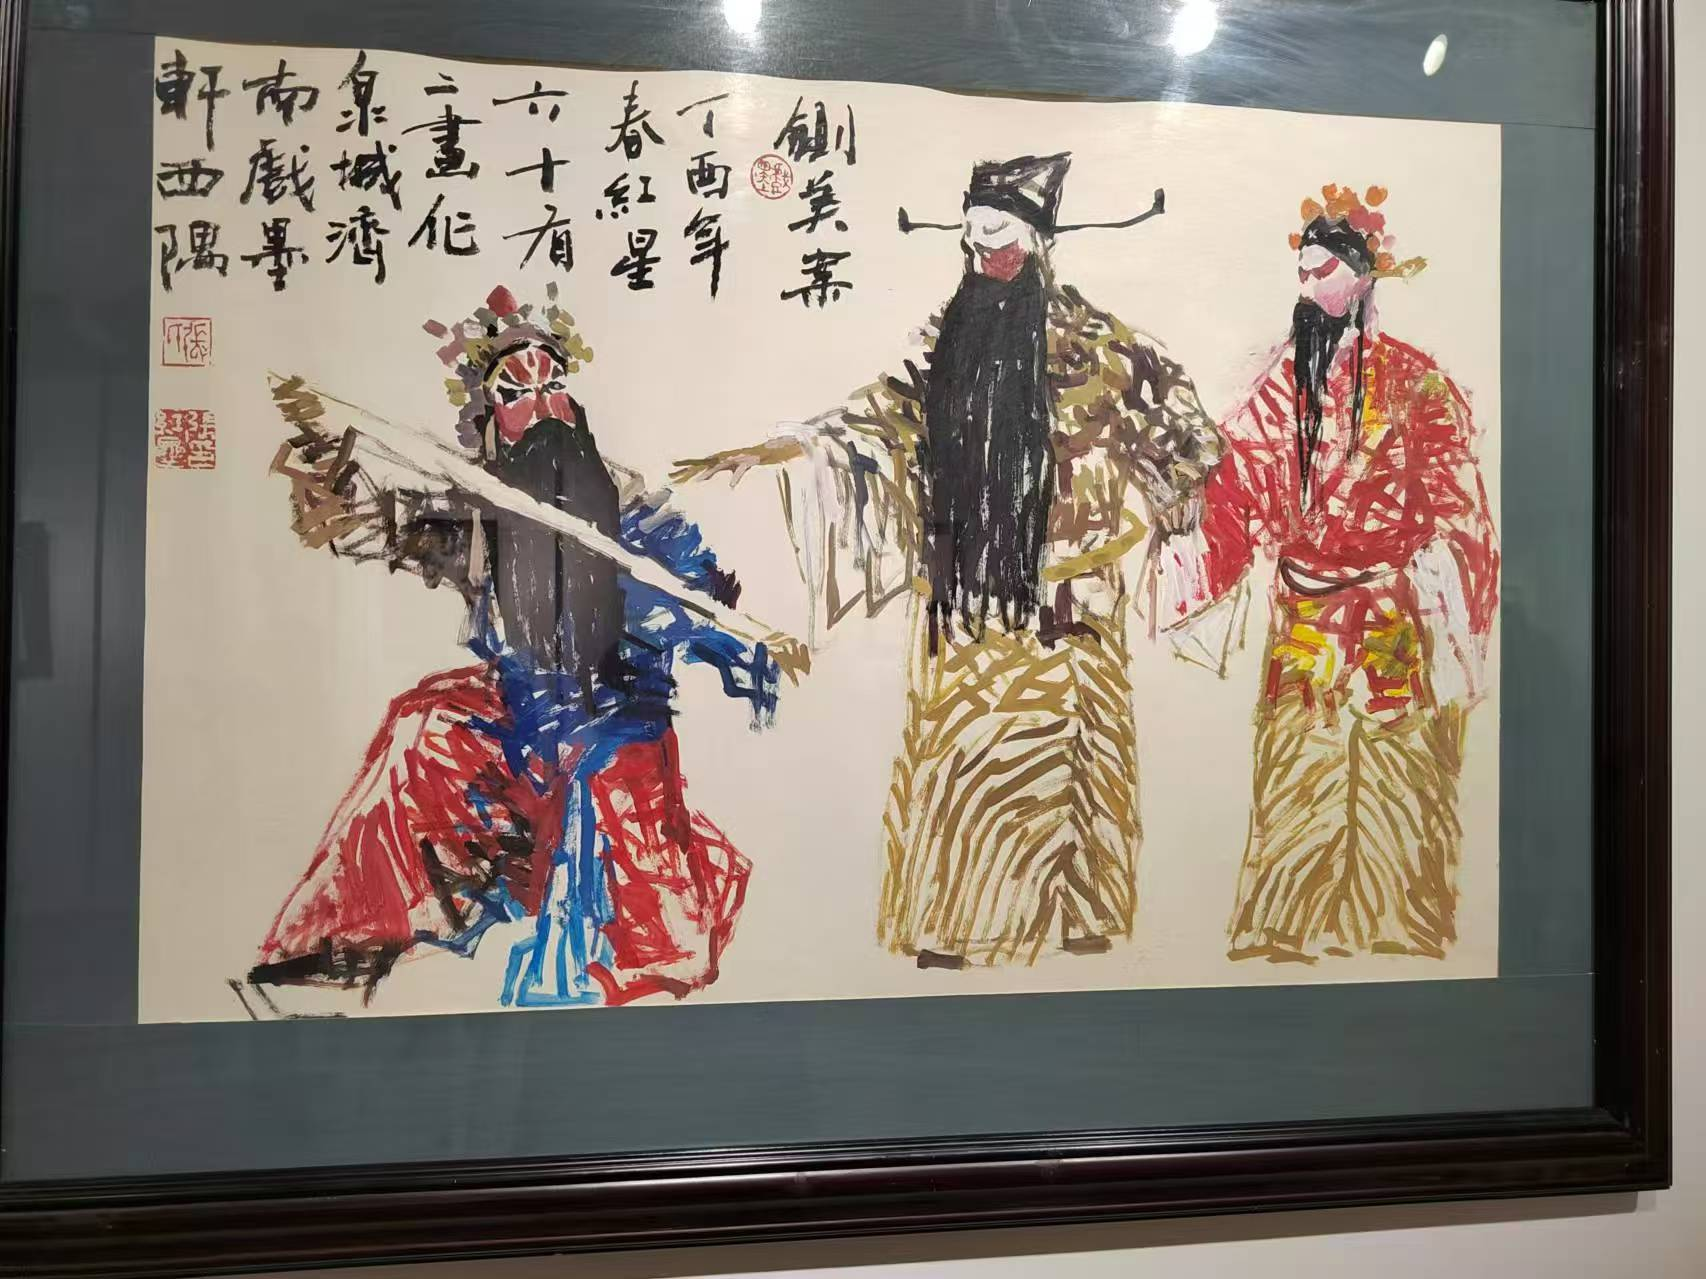 鍘美案
丁酉年
春紅星
六十有
二畫作
泉城濟
南戲墨
軒西隅